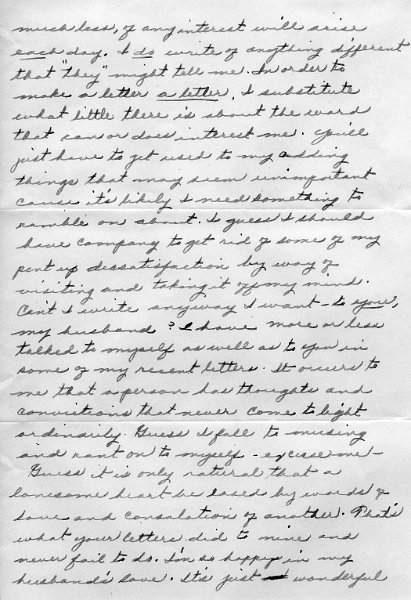 much less, of any interest will arise
each day. I do write of anything different
that "they" might tell me. In order to
make a letter a letter, I substitute
what little there is about the ward
that can or does interest me. You'll
just have to get used to my adding
things that may seem unimportant
cause it's likely I need something to
ramble on about. I guess I should
have company to get rid of some of my
pent up dessatisfaction by way of
visiting and taking it off my mind.
Can't I write anyway I want - to you,
my husband? I have more or less
talked to myself as well as to you in
some of my recent letters. It occurs to
me that a person has thoughts and
convictions that never come to light
ordinarily. Guess I fall to musing
and rant on to myself - excuse me -
Guess it is only natural that a
lonesome heart be eased by words of
love and consolation of another. That's
what your letters did to mine and
never fail to do. I'm so happy in my
husband's love. It's just wonderful